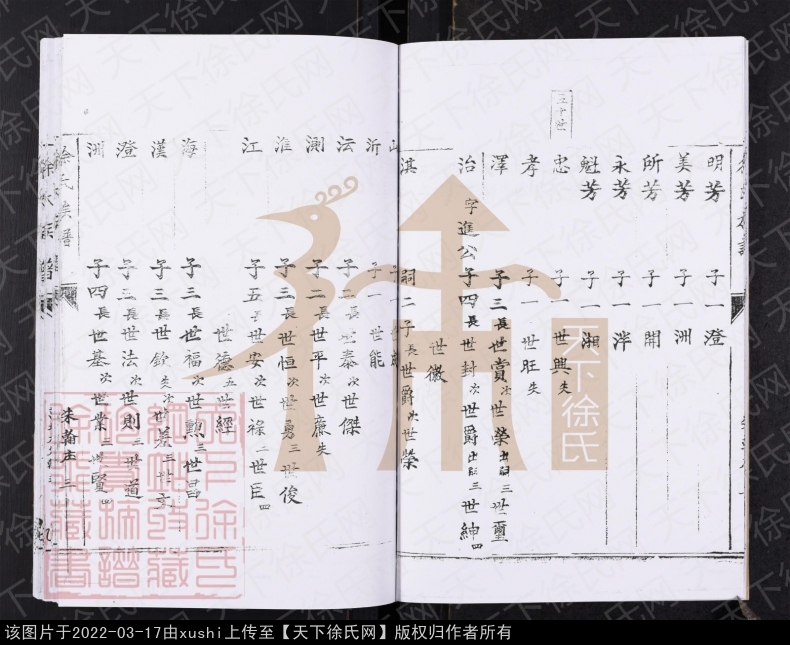 五十世
明芳 子一澄
美芳 子一洲
所芳 子一開
永芳 子一泮
魁芳 子一湘
忠 子一世興失
孝 子一世旺失
澤 子三長世賞次世榮出嗣三世璽
治 字進公子四長世封次世爵出嗣三世紳四
世徽
淇 嗣二子長世爵次世榮
沂 子一世能
沄 世泰次世傑
澗 子二長世平次世廉失
淮 子三長世恒次世勇三世俊
江 子五長世安次世祿三世臣四
世德五世經
海 子三長世福次世勲三世昌
漢 子三長世欽失次世基三世
澄 子三長世法次世則三世道
洲 子四長世基次世業三世賢四
徐氏族譜
朱翰庄
天下徐氏
天下徐氏网
该图片于2022-03-17由xushi上传至【天下徐氏网】版权归作者所有